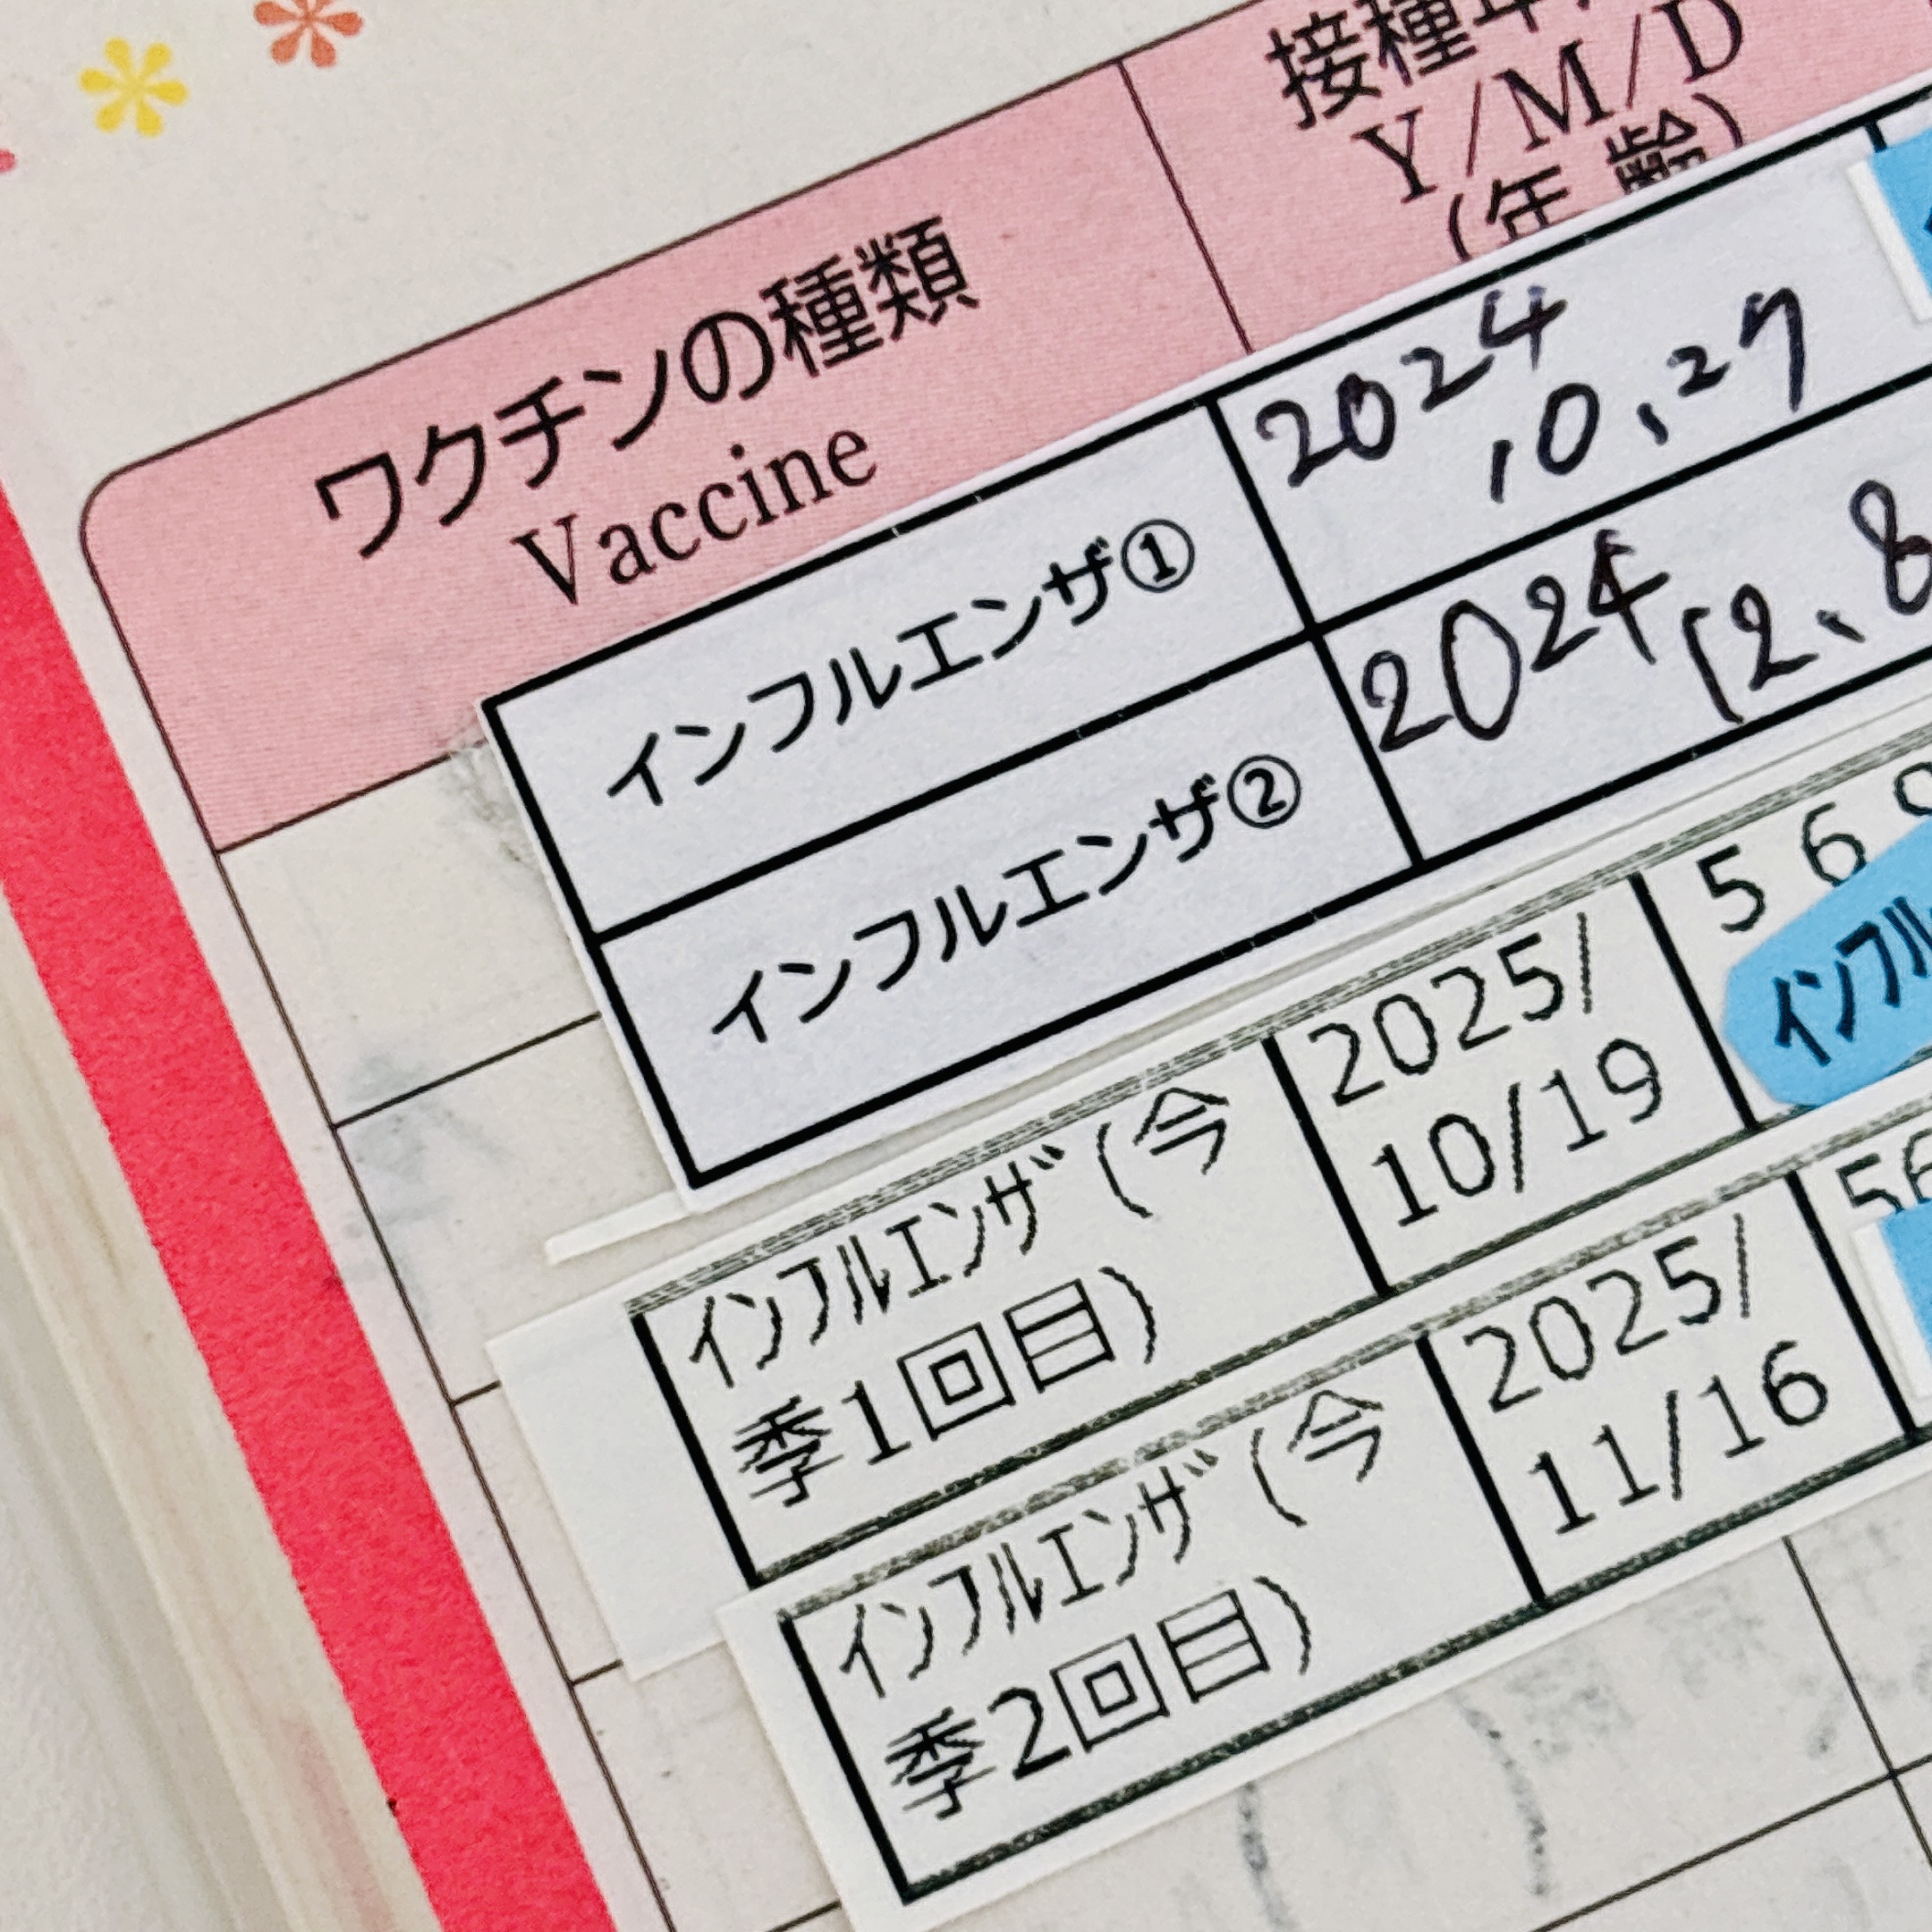 ワクチンの種類
Vaccine
接種年
Y/M/D
(年 齢)
インフルエンザ①
2024
10.27
インフルエンザ②
2024
12.8
ｲﾝﾌﾙｴﾝｻﾞ(今
季1回目)
2025/
10/19
5 6
ｲﾝﾌﾙ
ｲﾝﾌﾙｴﾝｻﾞ(今
季2回目)
2025/
11/16
56